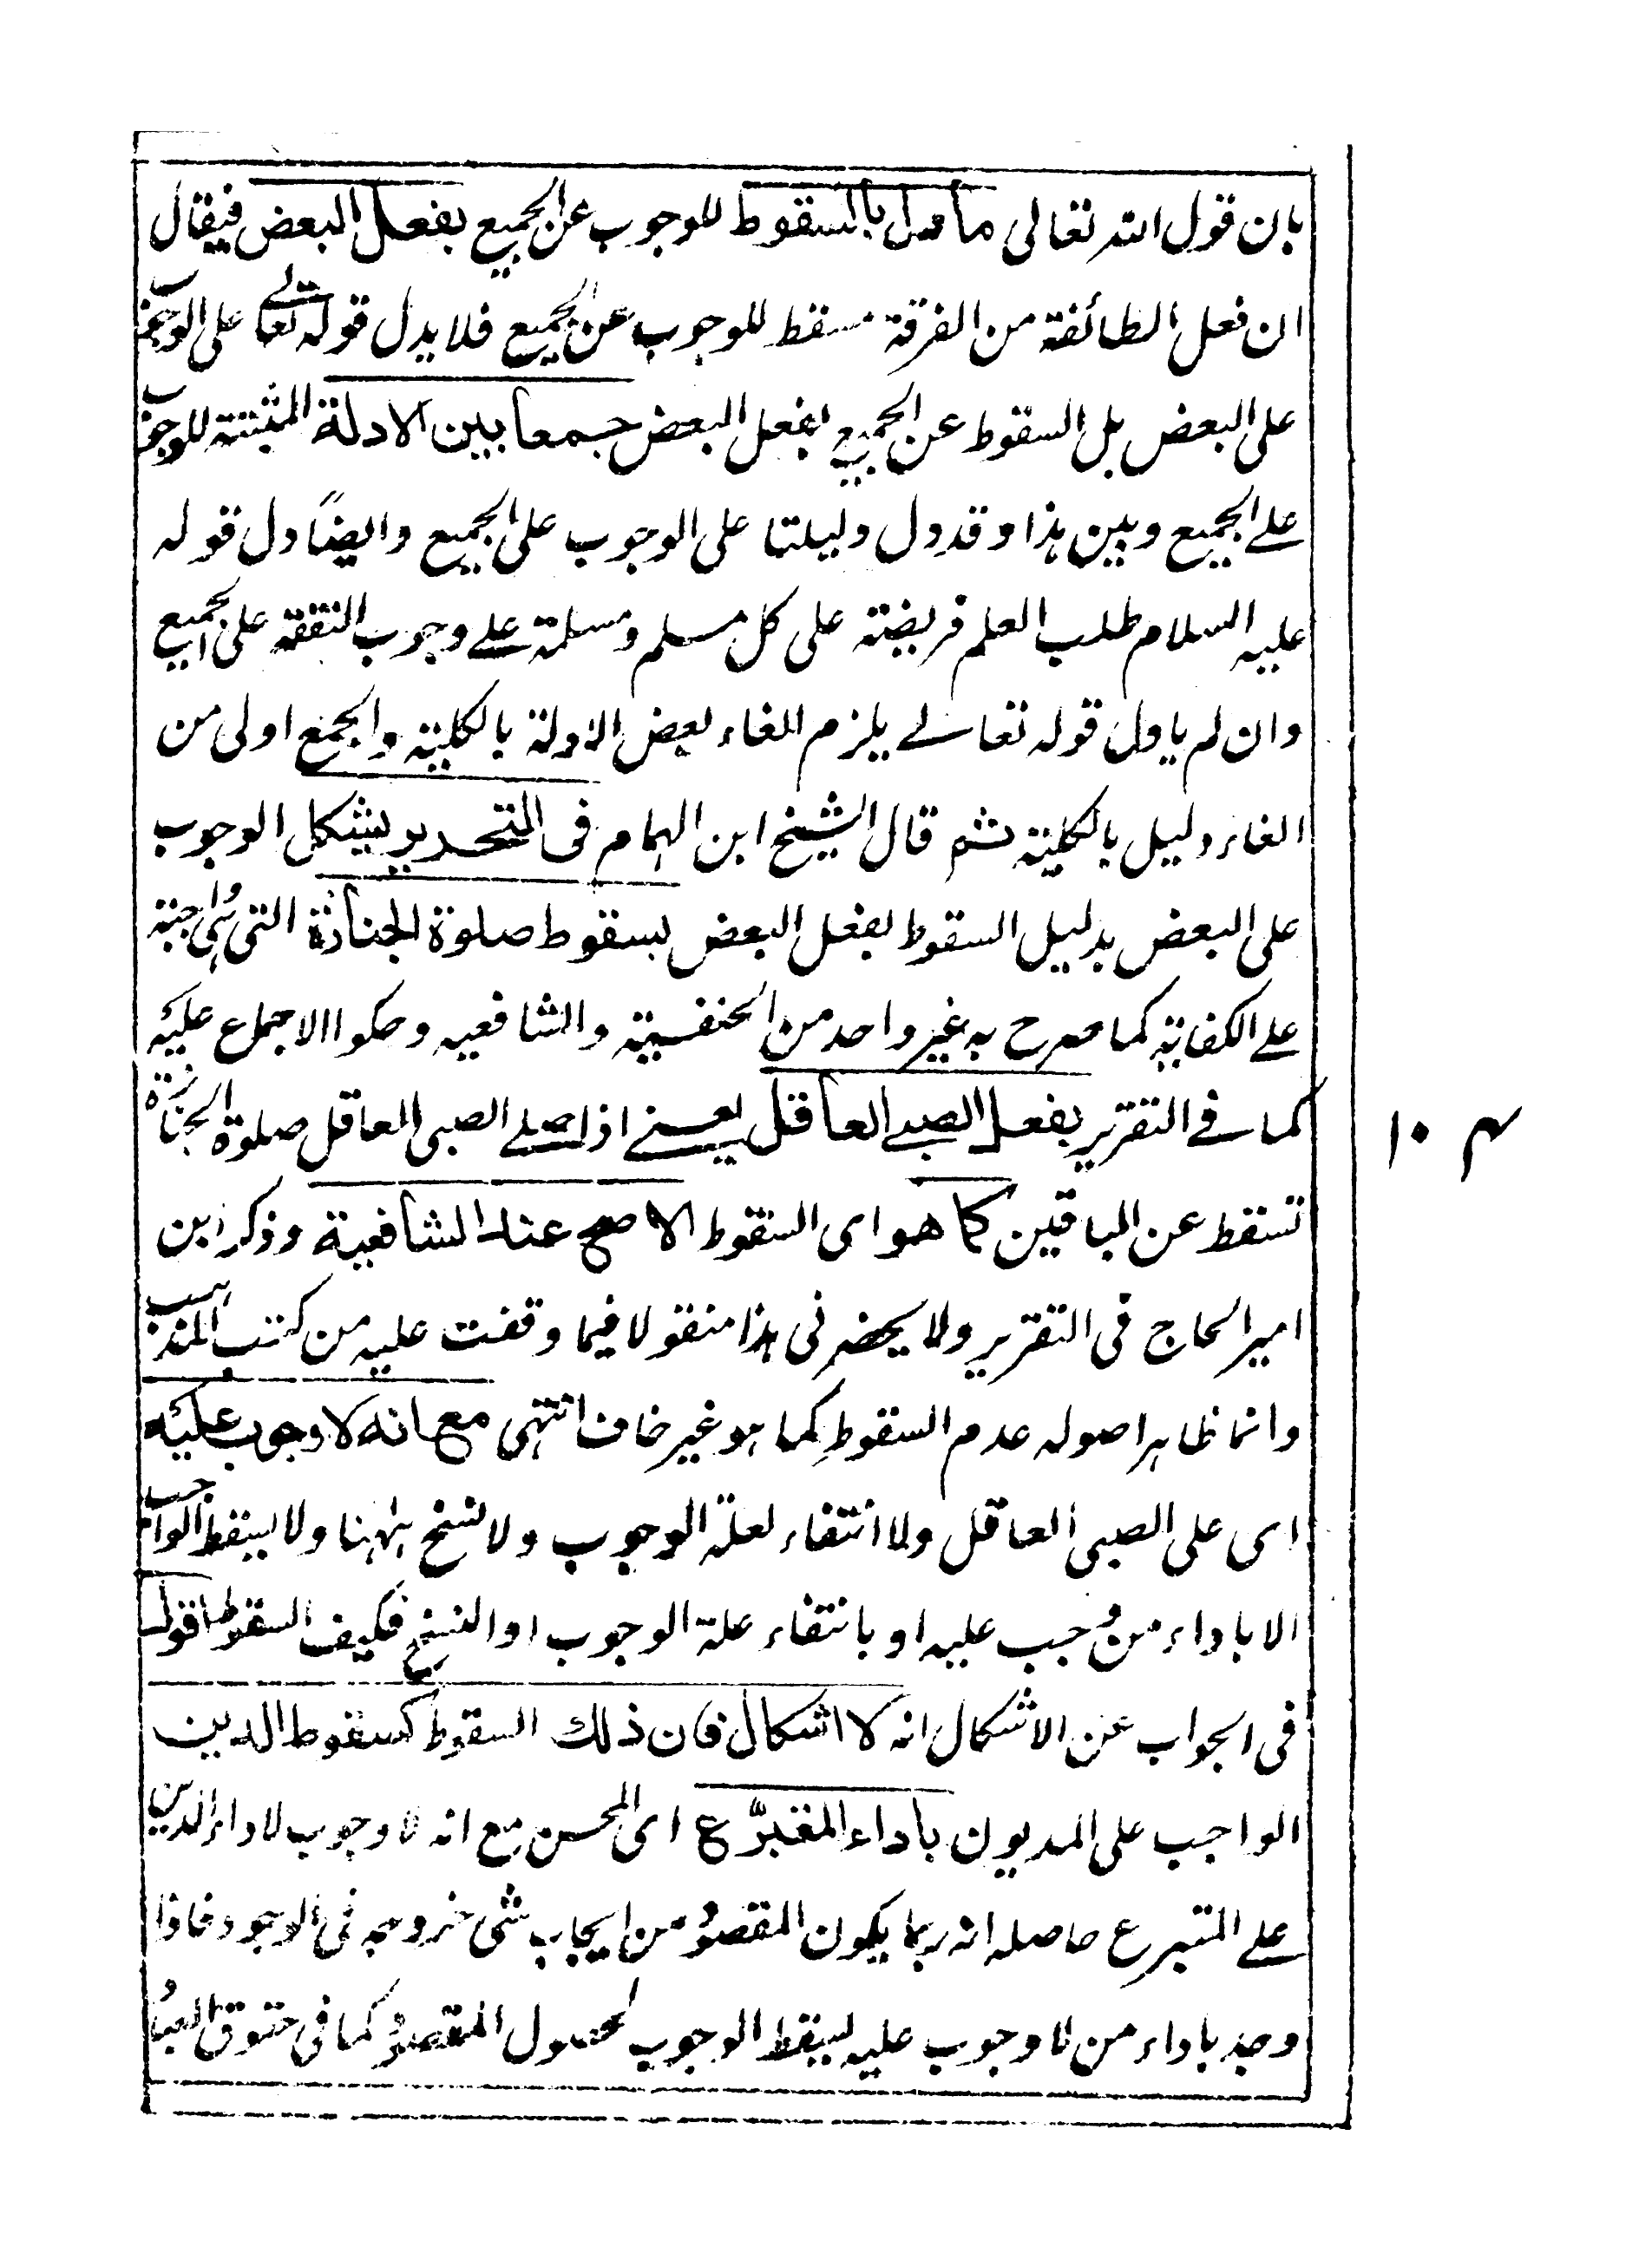 بان قول الله تعالى مأول بالسقوط للوجوب عن الجميع بفعل البعض فيقال
ان فعل الطائفة من الفرقة مسقط للوجوب عن الجميع فلا يدل قوله تعالى على الوجوب
على البعض بل السقوط عن الجميع بفعل البعض جمعا بين الادلة المثبتة للوجوب
على الجميع وبين هذا وقد دل دليلنا على الوجوب على الجميع وايضًا دل قوله
عليه السلام طلب العلم فريضة على كل مسلم ومسلمة على وجوب التفقه على الجميع
وان لم ياول قوله تعالى يلزم الغاء بعض الادلة بالكلية والجمع اولى من
الغاء دليل بالكلية ثم قال الشيخ ابن الهمام فى التحرير يشكل الوجوب
على البعض بدليل السقوط بفعل البعض بسقوط صلوة الجنازة التى هى واجبة
على الكفاية كما صرح به غير واحد من الحنفية والشافعيه وحكوا الاجماع عليه
كما فى التقرير بفعل الصبى العاقل يعنى اذا صلى الصبى العاقل صلوة الجنازة
تسقط عن الباقين كما هو اى السقوط الاصح عند الشافعية وذكر ابن
امير الحاج فى التقرير ولا يحضرنى هذا منقولا فيما وقفت عليه من كتب المذهب
وانما ظاهر اصوله عدم السقوط كما هو غير خاف انتهى مع انه لا وجوب عليه
اى على الصبى العاقل ولا انتفاء لعلة الوجوب ولا نسخ ههنا ولا يسقط الواجب
الا باداء من وجب عليه او بانتفاء علة الوجوب او النسخ فكيف السقوط اقول
فى الجواب عن الاشكال انه لا اشكال فان ذلك السقوط كسقوط الدين
الواجب على المديون باداء المتبرّع اى المحسن مع انه لا وجوب لاداء الدين
على المتبرع حاصله انه ربما يكون المقصود من ايجاب شى خروجه فى الوجود فاذا
وجد باداء من لا وجوب عليه يسقط الوجوب لحصول المقصود كما فى حقوق العباد
م ١٠